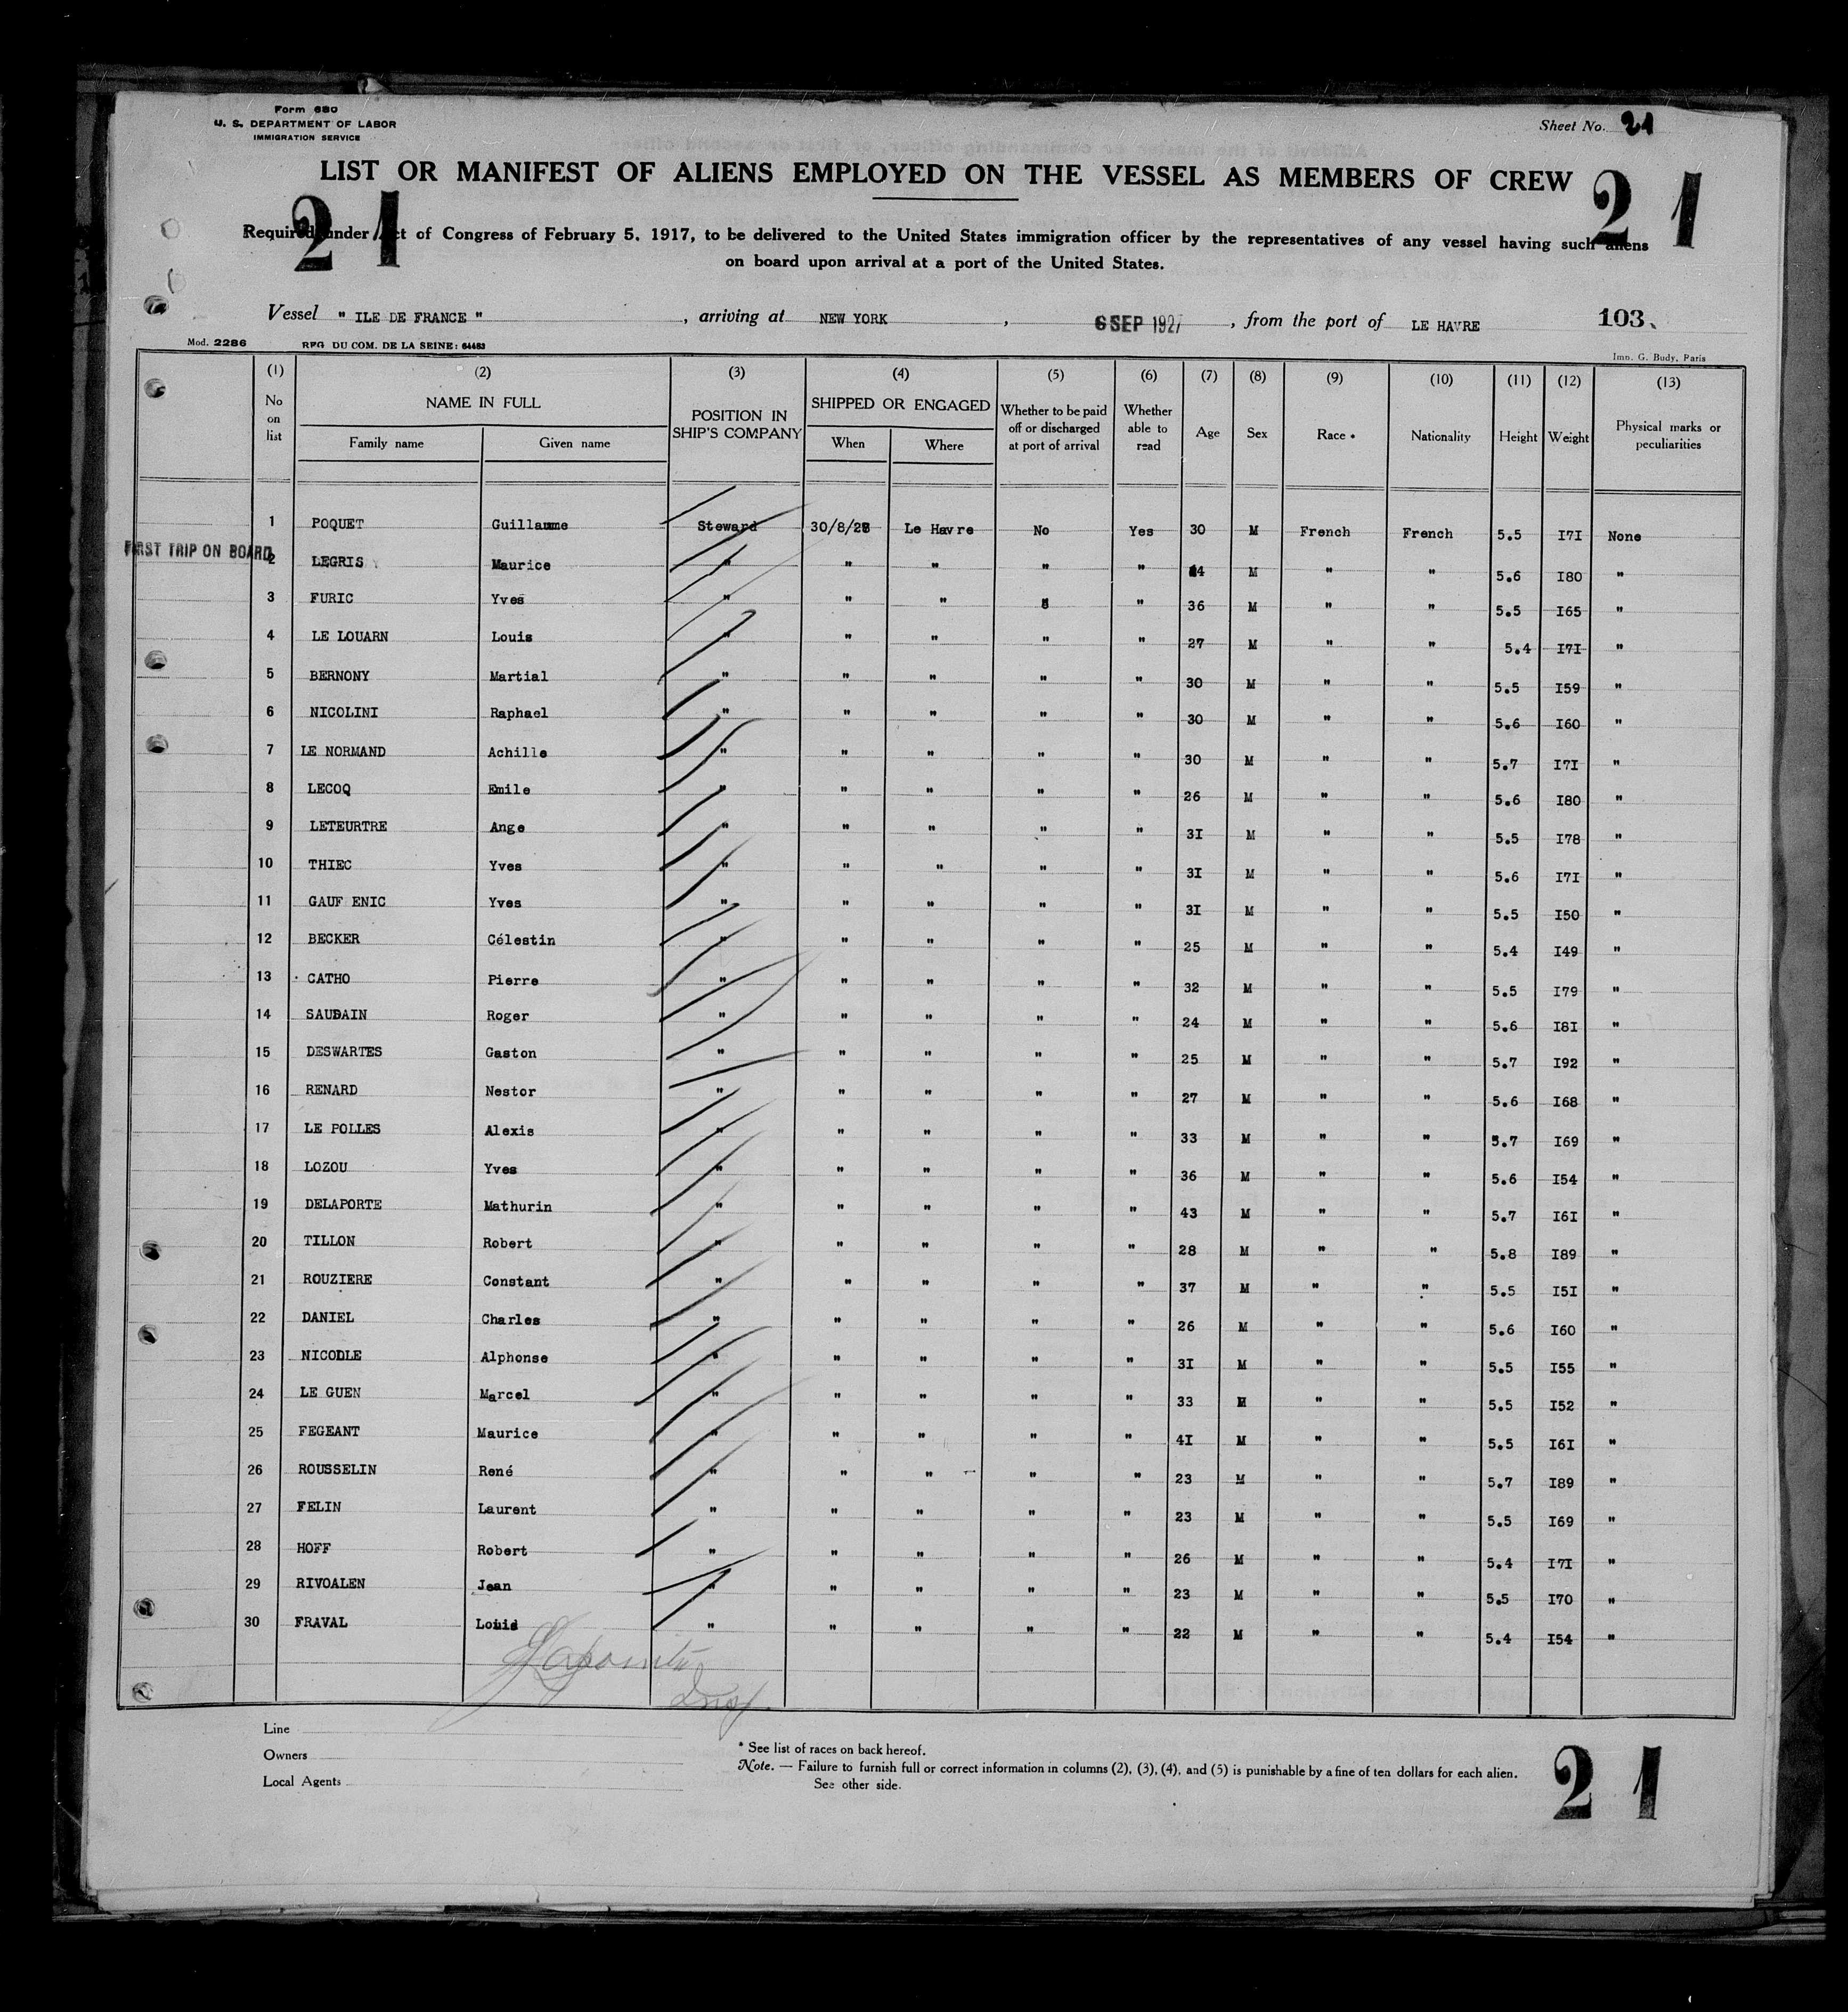 Form 680
U. S. DEPARTMENT OF LABOR
IMMIGRATION SERVICE
Sheet No. 21
LIST OR MANIFEST OF ALIENS EMPLOYED ON THE VESSEL AS MEMBERS OF CREW
21 21
Required under Act of Congress of February 5, 1917, to be delivered to the United States immigration officer by the representatives of any vessel having such aliens
on board upon arrival at a port of the United States.
Vessel " ILE DE FRANCE " , arriving at NEW YORK , 6 SEP 1927 , from the port of LE HAVRE 103.
Mod. 2286 REG DU COM. DE LA SEINE: 64483 Imp. G. Budy, Paris
(1) (2) (3) (4) (5) (6) (7) (8) (9) (10) (11) (12) (13)
No on list NAME IN FULL POSITION IN SHIP'S COMPANY SHIPPED OR ENGAGED Whether to be paid off or discharged at port of arrival Whether able to read Age Sex Race * Nationality Height Weight Physical marks or peculiarities
Family name Given name When Where
1 POQUET Guillaume Steward 30/8/28 Le Havre No Yes 30 M French French 5.5 I7I None
FIRST TRIP ON BOARD
2 LEGRIS Maurice " " " " " 4 M " " 5.6 I80 "
3 FURIC Yves " " " " " 36 M " " 5.5 I65 "
4 LE LOUARN Louis " " " " " 27 M " " 5.4 I7I "
5 BERNONY Martial " " " " " 30 M " " 5.5 I59 "
6 NICOLINI Raphael " " " " " 30 M " " 5.6 I60 "
7 LE NORMAND Achille " " " " " 30 M " " 5.7 I7I "
8 LECOQ Emile " " " " " 26 M " " 5.6 I80 "
9 LETEURTRE Ange " " " " " 3I M " " 5.5 I78 "
10 THIEC Yves " " " " " 3I M " " 5.6 I7I "
11 GAUF ENIC Yves " " " " " 3I M " " 5.5 I50 "
12 BECKER Célestin " " " " " 25 M " " 5.4 I49 "
13 CATHO Pierre " " " " " 32 M " " 5.5 I79 "
14 SAUDAIN Roger " " " " " 24 M " " 5.6 I8I "
15 DESWARTES Gaston " " " " " 25 M " " 5.7 I92 "
16 RENARD Nestor " " " " " 27 M " " 5.6 I68 "
17 LE POLLES Alexis " " " " " 33 M " " 5.7 I69 "
18 LOZOU Yves " " " " " 36 M " " 5.6 I54 "
19 DELAPORTE Mathurin " " " " " 43 M " " 5.7 I6I "
20 TILLON Robert " " " " " 28 M " " 5.8 I89 "
21 ROUZIERE Constant " " " " " 37 M " " 5.5 I5I "
22 DANIEL Charles " " " " " 26 M " " 5.6 I60 "
23 NICODLE Alphonse " " " " " 3I M " " 5.5 I55 "
24 LE GUEN Marcel " " " " " 33 M " " 5.5 I52 "
25 FEGEANT Maurice " " " " " 4I M " " 5.5 I6I "
26 ROUSSELIN René " " " " " 23 M " " 5.7 I89 "
27 FELIN Laurent " " " " " 23 M " " 5.5 I69 "
28 HOFF Robert " " " " " 26 M " " 5.4 I7I "
29 RIVOALEN Jean " " " " " 23 M " " 5.5 I70 "
30 FRAVAL Louis " " " " " 22 M " " 5.4 I54 "
Line
Owners
Local Agents
* See list of races on back hereof.
Note. — Failure to furnish full or correct information in columns (2), (3), (4), and (5) is punishable by a fine of ten dollars for each alien.
See other side.
21